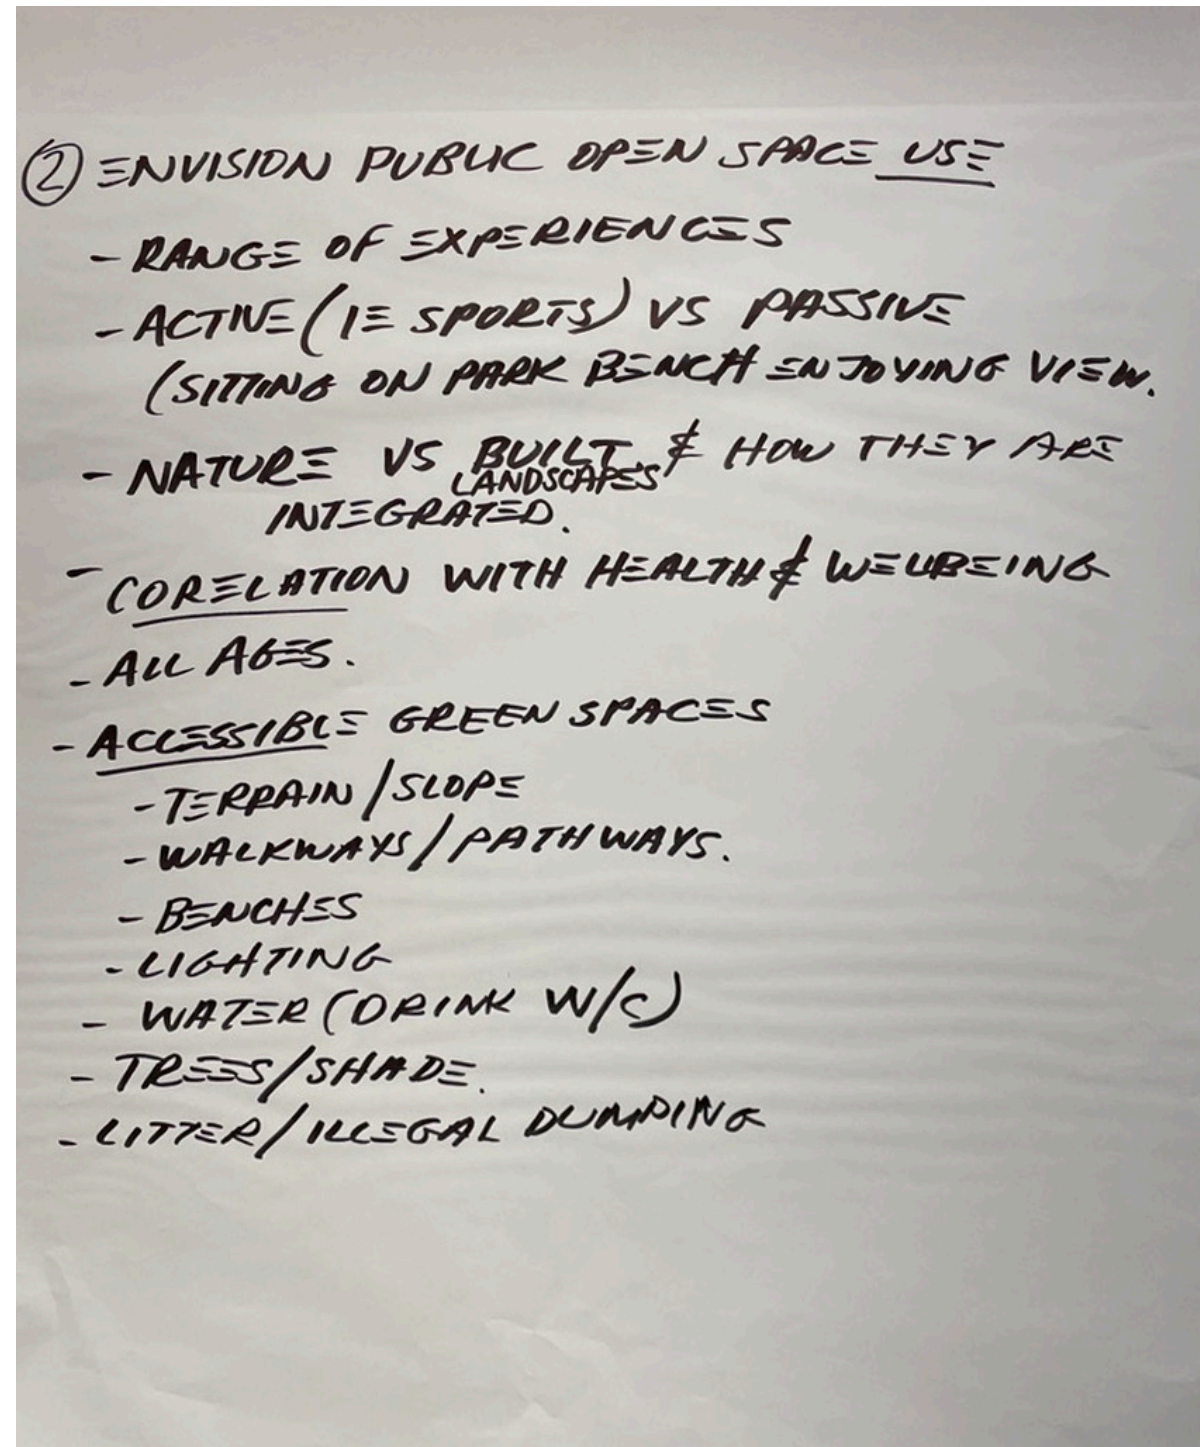 ② ENVISION PUBLIC OPEN SPACE USE
- RANGE OF EXPERIENCES
- ACTIVE (IE SPORTS) VS PASSIVE
(SITTING ON PARK BENCH ENJOYING VIEW.
- NATURE VS BUILT & HOW THEY ARE
LANDSCAPES
INTEGRATED.
- CORELATION WITH HEALTH & WELLBEING
- ALL AGES.
- ACCESSIBLE GREEN SPACES
- TERRAIN/SLOPE
- WALKWAYS/PATHWAYS.
- BENCHES
- LIGHTING
- WATER (DRINK W/C)
- TREES/SHADE.
- LITTER/ILLEGAL DUMPING